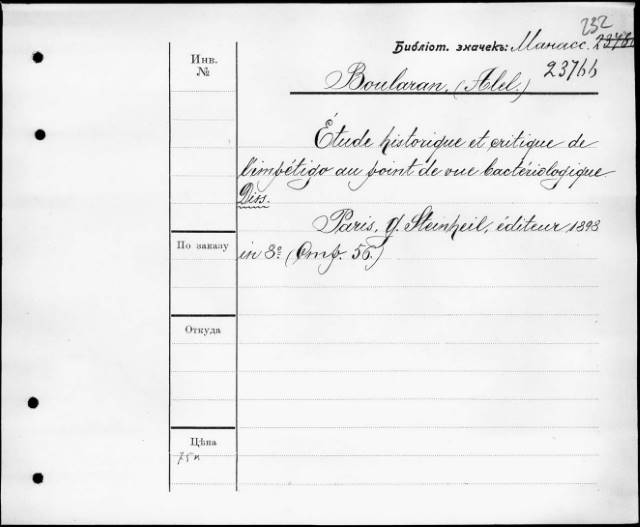 232
Библіот. значекъ: Манасс.
23766
Инв.
№
Boularan. (Abel.)
Étude historique et critique de
l'impétigo au point de vue bactériologique
Diss.
Paris, G. Steinheil, éditeur 1898
По заказу
in 8º (Стр. 56.)
Откуда
Цѣна
75к